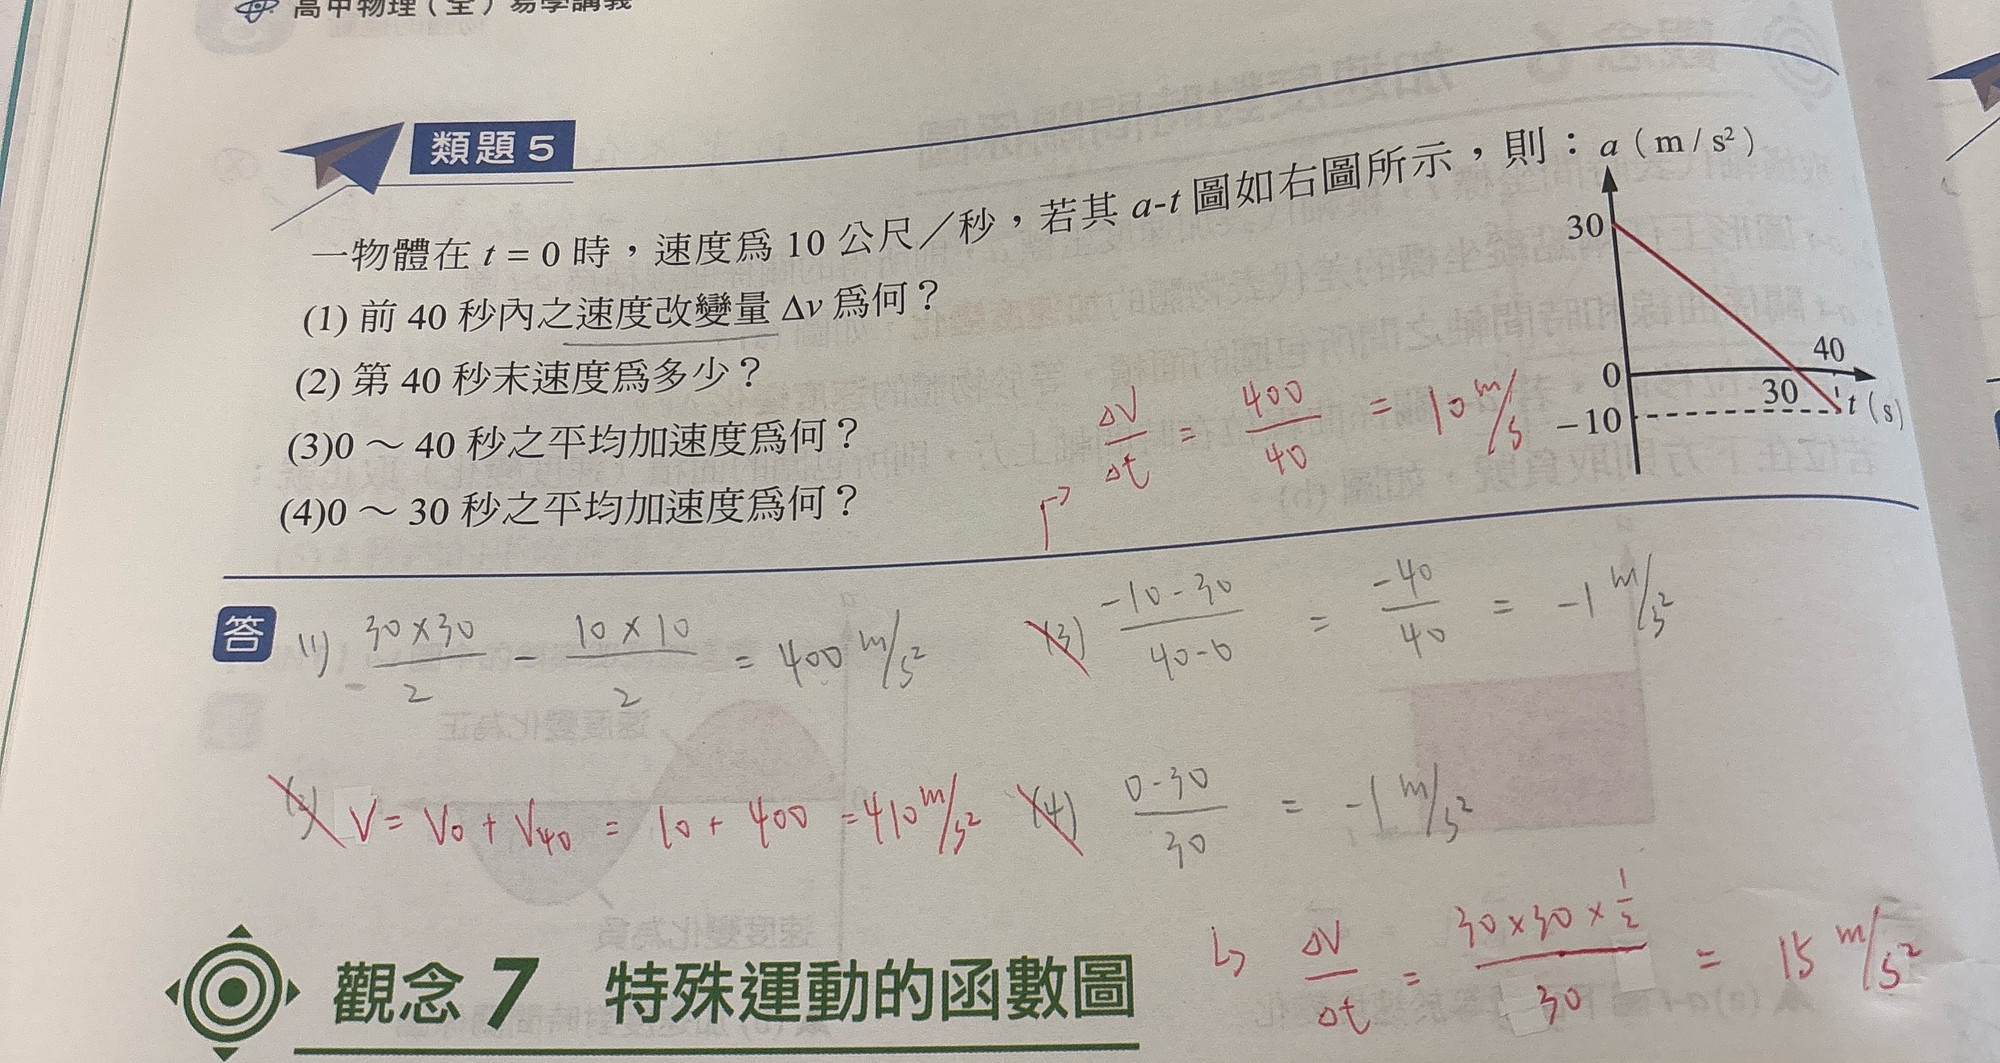 高中物理(全)易學講義
類題 5
一物體在 t = 0 時，速度爲 10 公尺／秒，若其 a-t 圖如右圖所示，則：
(1) 前 40 秒內之速度改變量 Δv 爲何？
(2) 第 40 秒末速度爲多少？
(3)0 ～ 40 秒之平均加速度爲何？
(4)0 ～ 30 秒之平均加速度爲何？
a (m / s²)
30
0
-10
30
40
t (s)
ΔV/Δt = 400/40 = 10 m/s
答
(1) 30×30/2 - 10×10/2 = 400 m/s²
(3) -10-30/40-0 = -40/40 = -1 m/s²
V = V0 + V40 = 10 + 400 = 410 m/s²
(4) 0-30/30 = -1 m/s²
ΔV/Δt = 30×30×1/2/30 = 15 m/s²
觀念 7 特殊運動的函數圖